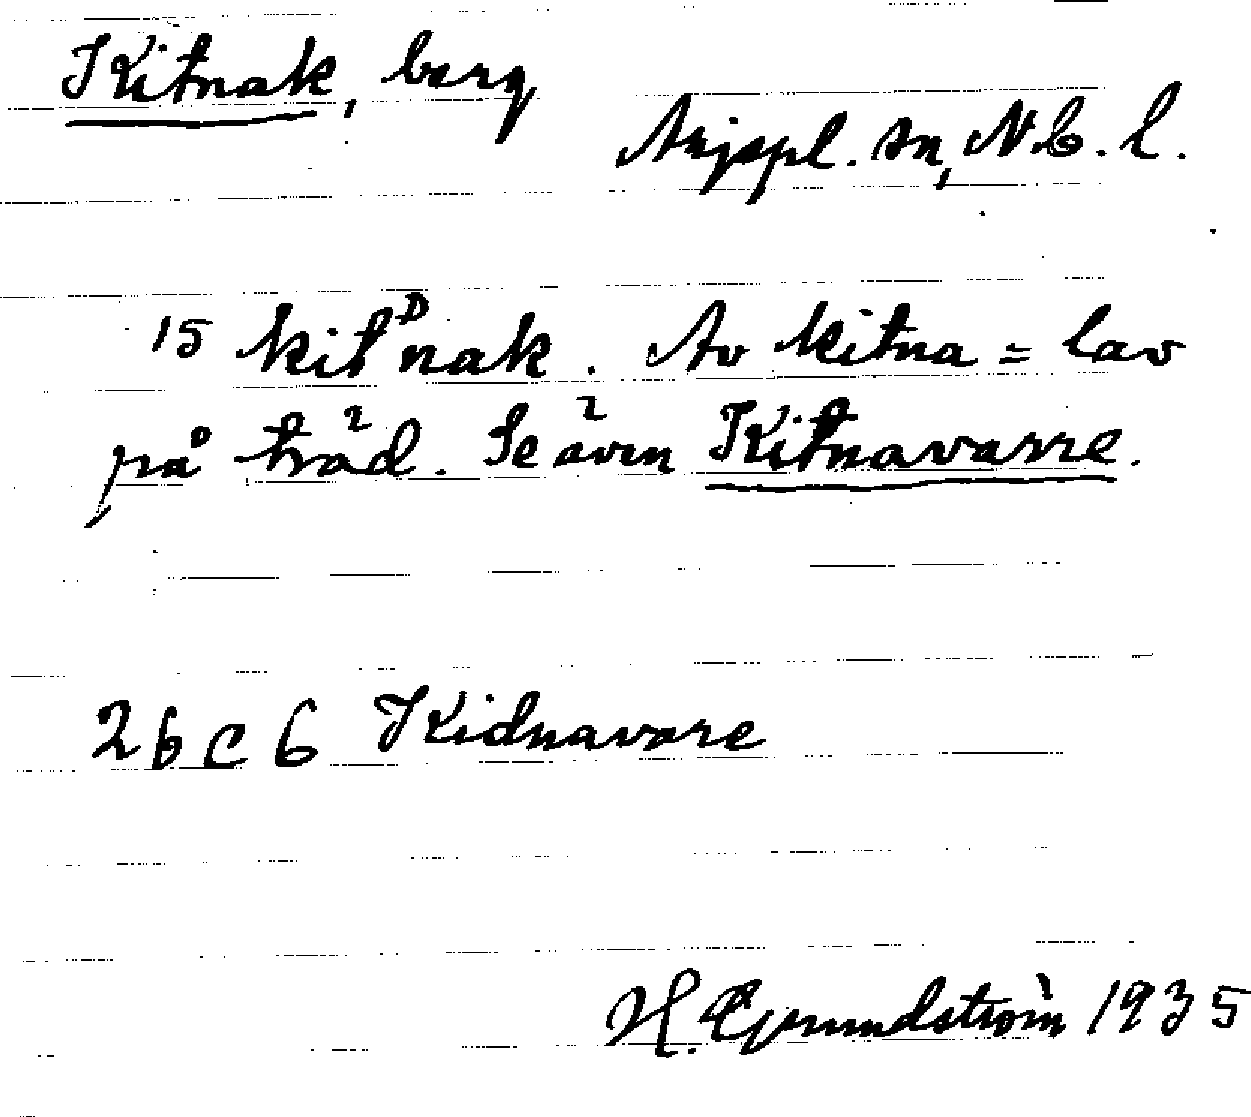 Kitnak, berg
Arjepl. sn, N.b. l.
15 kitᴰnak. Av kitna = lav
på träd. Se även Kitnavarre.
26 C 6 Kidnavare
H. Grundström 1935